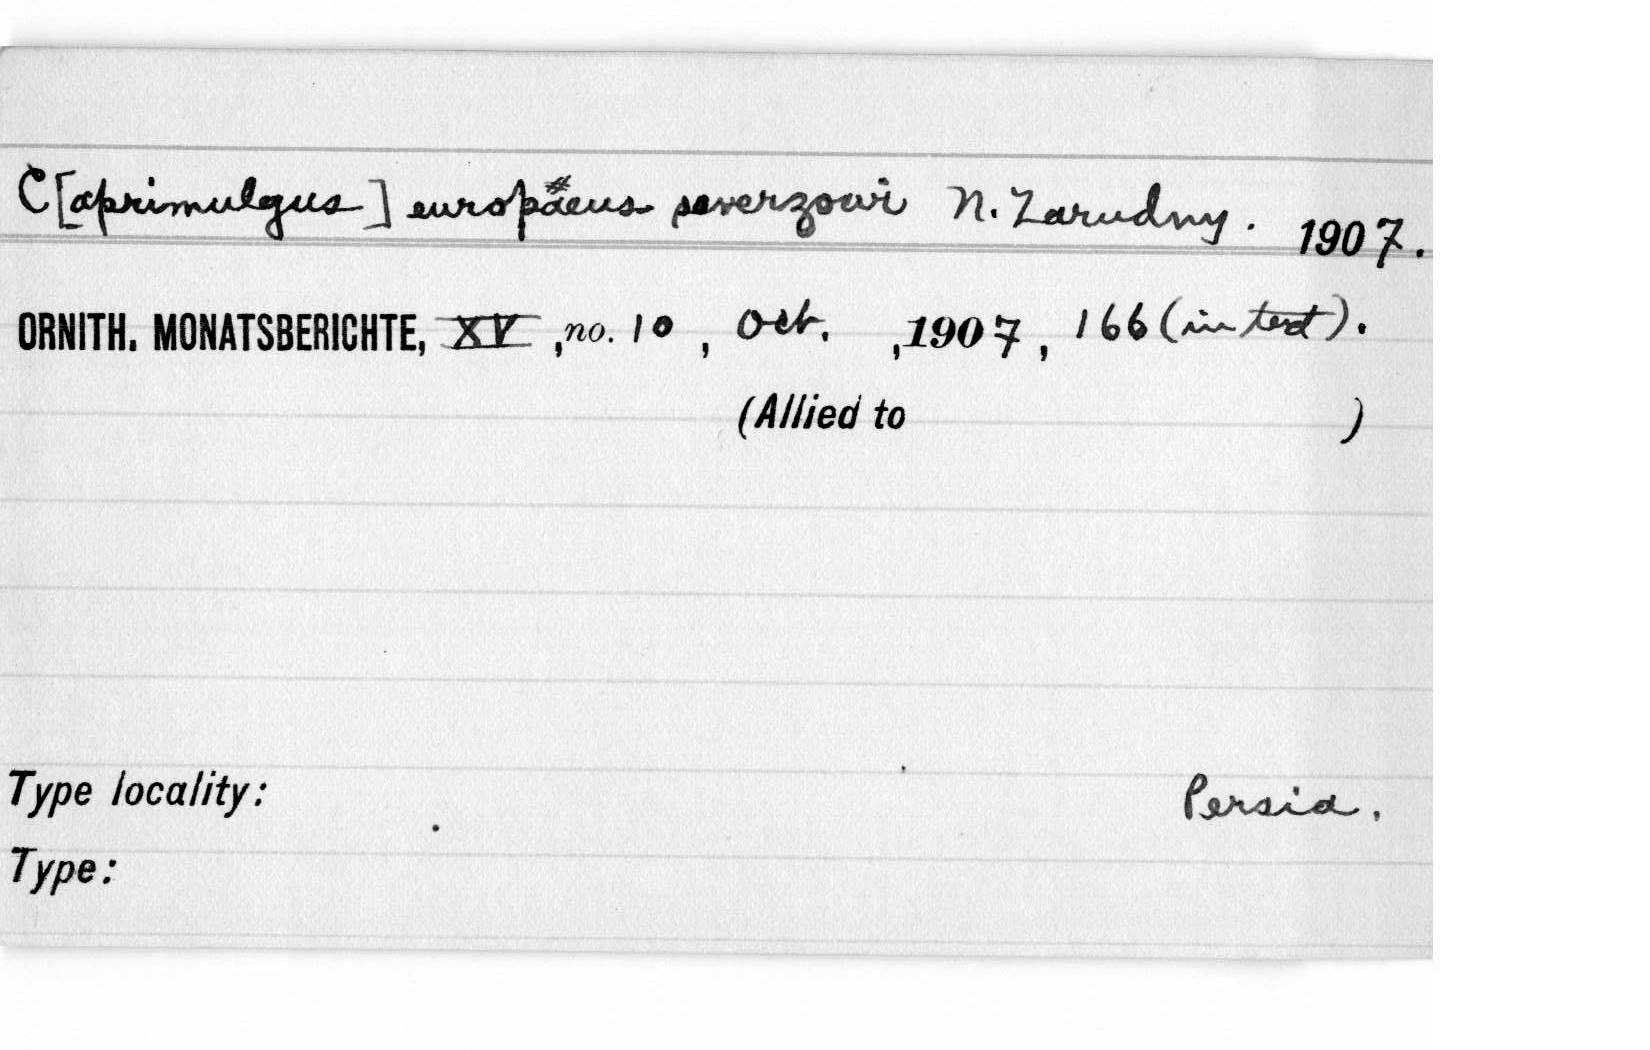 C[aprimulgus] europaeus severzowi N. Zarudny. 1907.
ORNITH. MONATSBERICHTE, XV, no. 10, Oct., 1907, 166 (in text).
(Allied to )
Type locality: Persia.
Type: